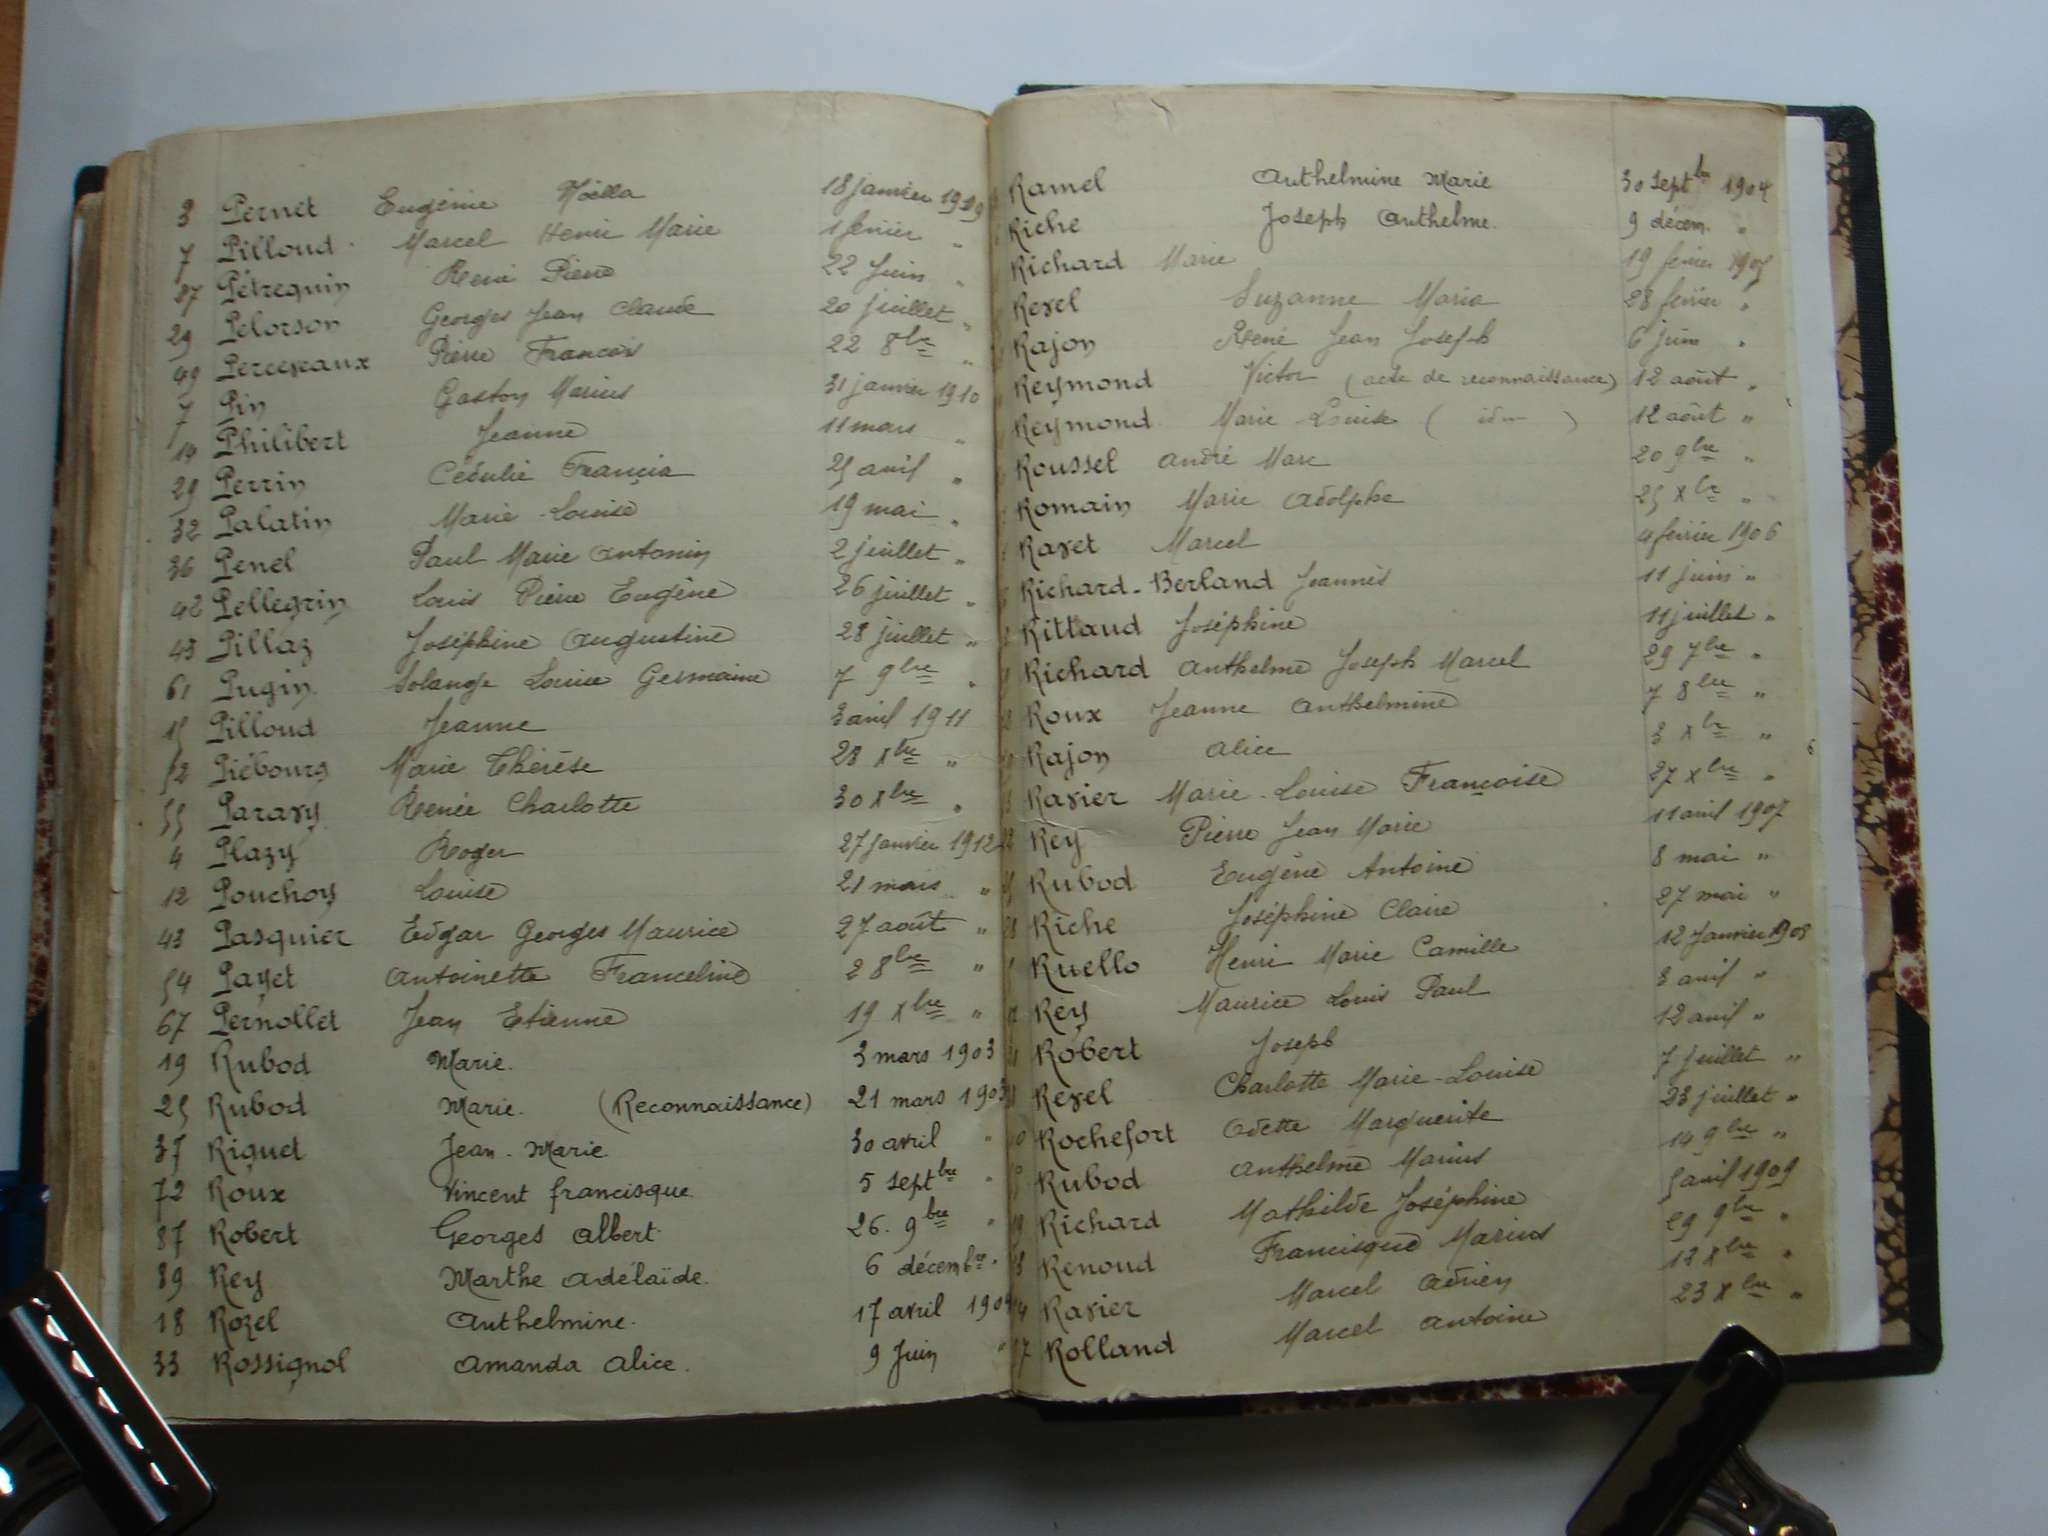 3 Pernet Eugénie Noëlla 18 janvier 1909
7 Pilloud Marcel Henri Marie 1 février "
27 Pétrequin René Pierre 22 Juin "
29 Pelorson Georges Jean Claude 20 juillet "
49 Perceveaux Pierre François 22 8bre "
7 Pin Gaston Marius 31 janvier 1910
14 Philibert Jeanne 11 mars "
29 Perrin Cédulie Francia 25 avril "
32 Palatin Marie-Louise 19 mai "
36 Penel Paul Marie Antonin 2 juillet "
42 Pellegrin Louis Pierre Eugène 26 juillet "
43 Pillaz Joséphine Augustine 28 juillet "
61 Pugin Solange Louise Germaine 7 9bre "
15 Pilloud Jeanne 3 avril 1911
52 Piébourg Marie Thérèse 28 Xbre "
55 Paravy Renée Charlotte 30 Xbre "
4 Plazy Roger 27 Janvier 1912
12 Pouchoy Louise 21 mars "
43 Pasquier Edgar Georges Maurice 27 août "
54 Payet Antoinette Franceline 2 8bre "
67 Pernollet Jean Etienne 19 Xbre "
19 Rubod Marie. 3 mars 1903
25 Rubod Marie. (Reconnaissance) 21 mars 1903
37 Riquet Jean-Marie. 30 avril "
72 Roux Vincent francisque. 5 Septbre "
87 Robert Georges Albert. 26. 9bre "
89 Rey Marthe Adélaïde. 6 décembre "
18 Rozel Anthelmine. 17 avril 1904
33 Rossignol Amanda Alice. 9 Juin "
Ramel Anthelmine Marie 30 Septbre 1904
Riche Joseph Anthelme. 9 décem. "
Richard Marie 19 février 1905
Revel Suzanne Maria 28 février "
Rajon René Jean Joseph 6 juin "
Reymond Victor (acte de reconnaissance) 12 août "
Reymond Marie-Louise ( idm ) 12 août "
Roussel André Marc 20 9bre "
Romain Marie Adolphe 25 Xbre "
Ravet Marcel 4 février 1906
Richard-Berland Jeannès 11 juin "
Rittaud Joséphine 11 juillet "
Richard Anthelme Joseph Marcel 29 7bre "
Roux Jeanne Anthelmine 7 8bre "
Rajon Alice 3 Xbre "
Ravier Marie-Louise Françoise 27 Xbre "
Rey Pierre Jean Marie 11 avril 1907
Rubod Eugène Antoine 8 mai "
Riche Joséphine Claire 27 mai "
Ruello Henri Marie Camille 12 Janvier 1908
Rey Maurice Louis Paul 3 avril "
Robert Joseph 12 avril "
Revel Charlotte Marie-Louise 7 Juillet "
Rochefort Odette Marguerite 23 juillet "
Rubod Anthelme Marius 14 9bre "
Richard Mathilde Joséphine 5 avril 1909
Renoud Francisque Marius 29 9bre "
Ravier Marcel Adrien 12 Xbre "
Rolland Marcel Antoine 23 Xbre "